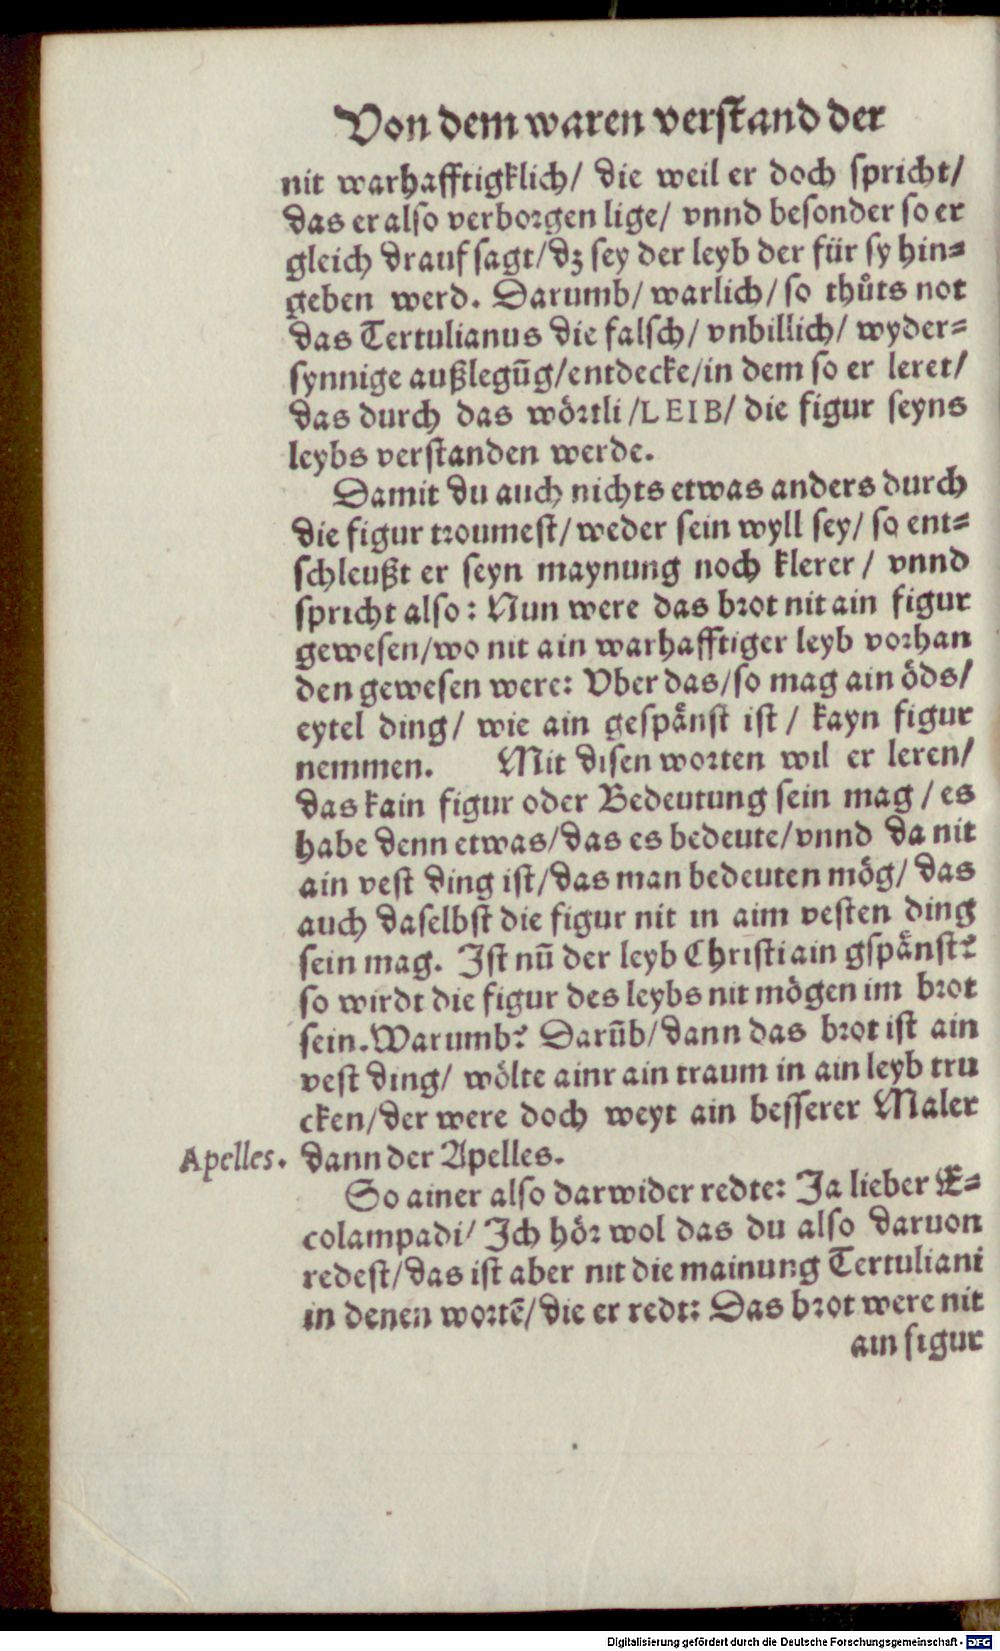 Von dem waren verstand der
nit warhafftigklich/ die weil er doch spricht/
das er also verborgen lige/ vnnd besonder so er
gleich drauf sagt/ dz sey der leyb der für sy hin=
geben werd. Darumb/ warlich/ so thůts not
das Tertulianus die falsch/ vnbillich/ wyder=
synnige außlegūg/ entdecke/ in dem so er leret/
das durch das wörtli /LEIB/ die figur seyns
leybs verstanden werde.
Damit du auch nichts etwas anders durch
die figur troumest/ weder sein wyll sey/ so ent=
schleußt er seyn maynung noch klerer / vnnd
spricht also: Nun were das brot nit ain figur
gewesen/ wo nit ain warhafftiger leyb vorhan
den gewesen were: Vber das/ so mag ain öds/
eytel ding/ wie ain gespånst ist / kayn figur
nemmen. Mit disen worten wil er leren/
das kain figur oder Bedeutung sein mag / es
habe denn etwas/ das es bedeute/ vnnd da nit
ain vest ding ist/ das man bedeuten mög/ das
auch daselbst die figur nit in aim vesten ding
sein mag. Ist nū der leyb Christi ain gspånst?
so wirdt die figur des leybs nit mögen im brot
sein. Warumb? Darūb/ dann das brot ist ain
vest ding/ wölte ainr ain traum in ain leyb tru
cken/ der were doch weyt ain besserer Maler
Apelles. dann der Apelles.
So ainer also darwider redte: Ja lieber E=
colampadi/ Ich hör wol das du also daruon
redest/ das ist aber nit die mainung Tertuliani
in denen wortē/ die er redt: Das brot were nit
ain figur
Digitalisierung gefördert durch die Deutsche Forschungsgemeinschaft - DFG